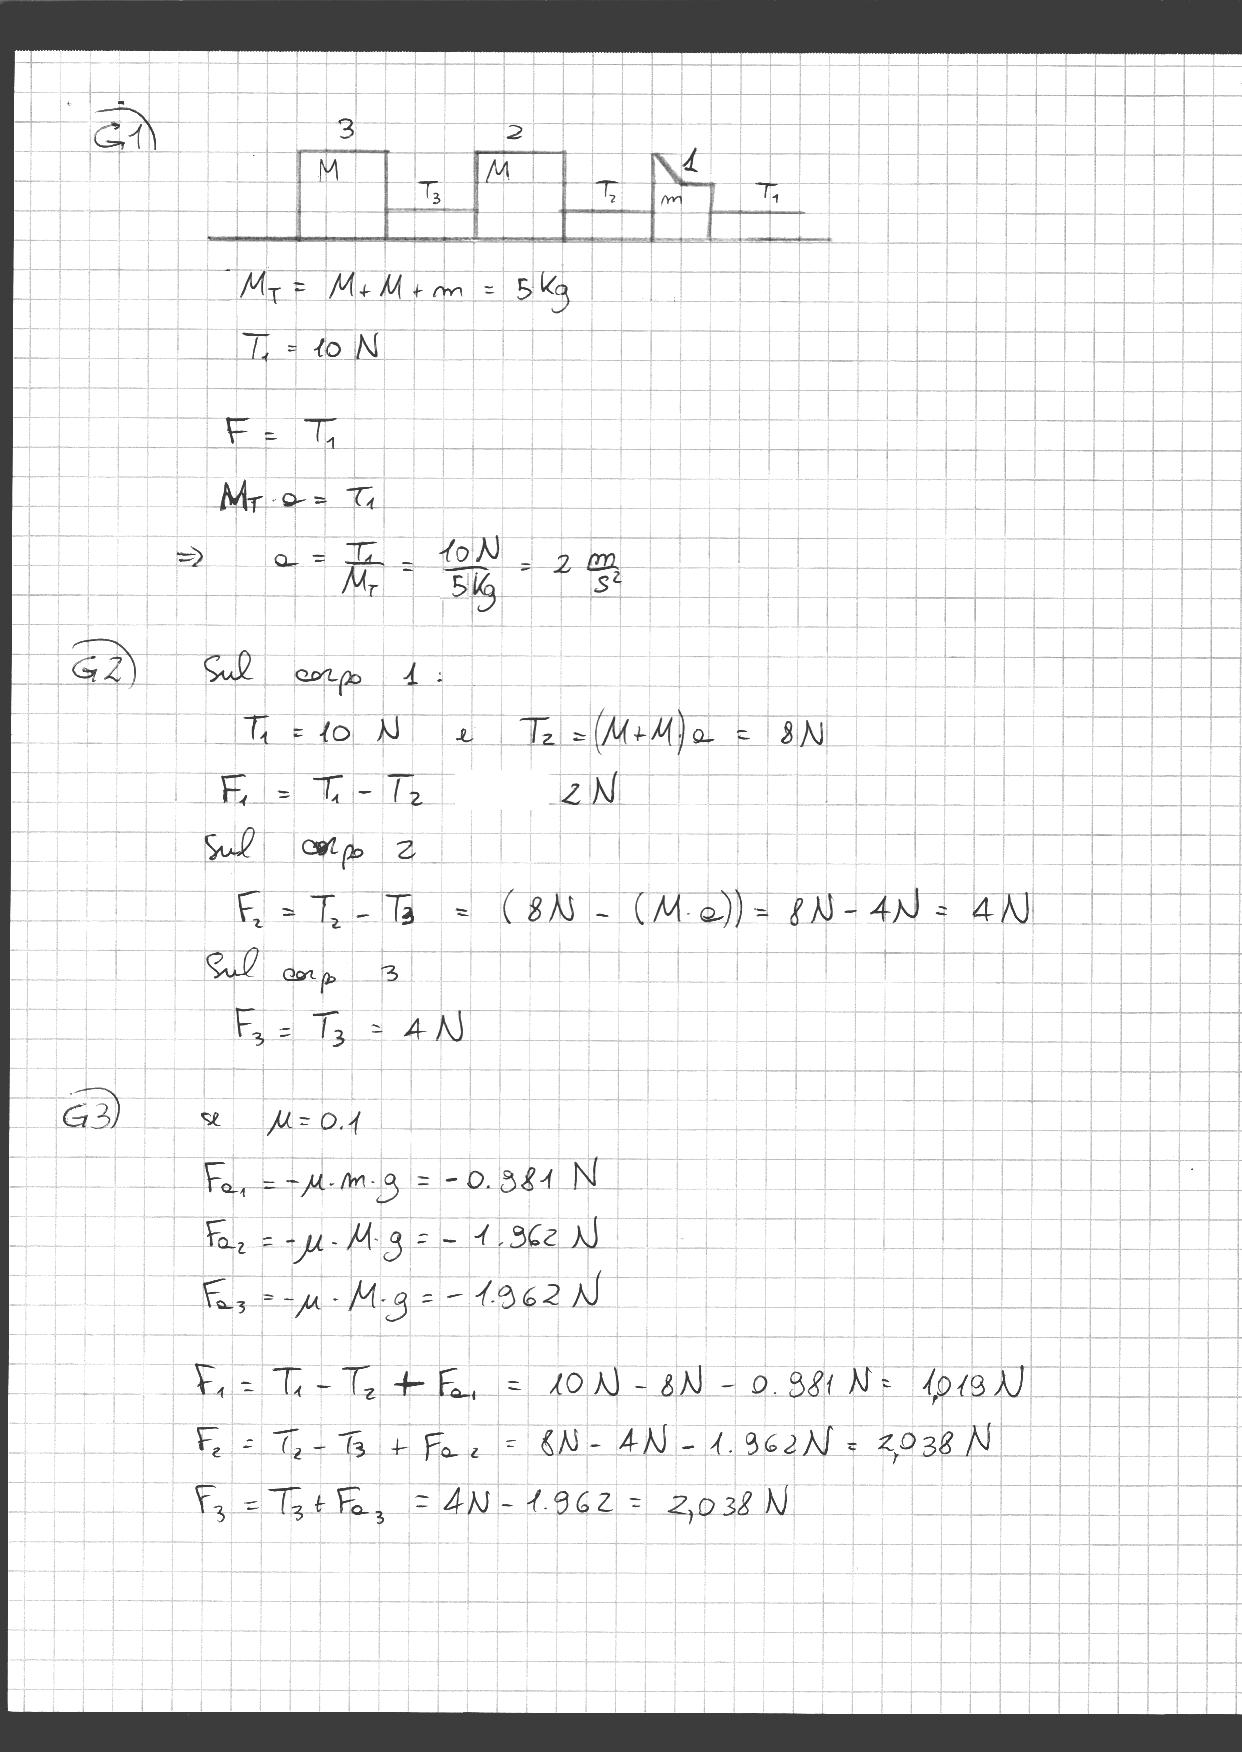 G1)
3 2 1
M M m
T₃ T₂ T₁
M_T = M + M + m = 5 Kg
T₁ = 10 N
F = T₁
M_T · a = T₁
⇒ a = T₁/M_T = 10N/5Kg = 2 m/s²
G2) Sul corpo 1:
T₁ = 10 N e T₂ = (M+M)a = 8N
F₁ = T₁ - T₂ 2N
Sul corpo 2
F₂ = T₂ - T₃ = (8N - (M·a)) = 8N - 4N = 4N
Sul corpo 3
F₃ = T₃ = 4N
G3) se μ = 0.1
Fa₁ = -μ·m·g = -0.981 N
Fa₂ = -μ·M·g = -1.962 N
Fa₃ = -μ·M·g = -1.962 N
F₁ = T₁ - T₂ + Fa₁ = 10N - 8N - 0.981 N = 1,019 N
F₂ = T₂ - T₃ + Fa₂ = 8N - 4N - 1.962N = 2,038 N
F₃ = T₃ + Fa₃ = 4N - 1.962 = 2,038 N